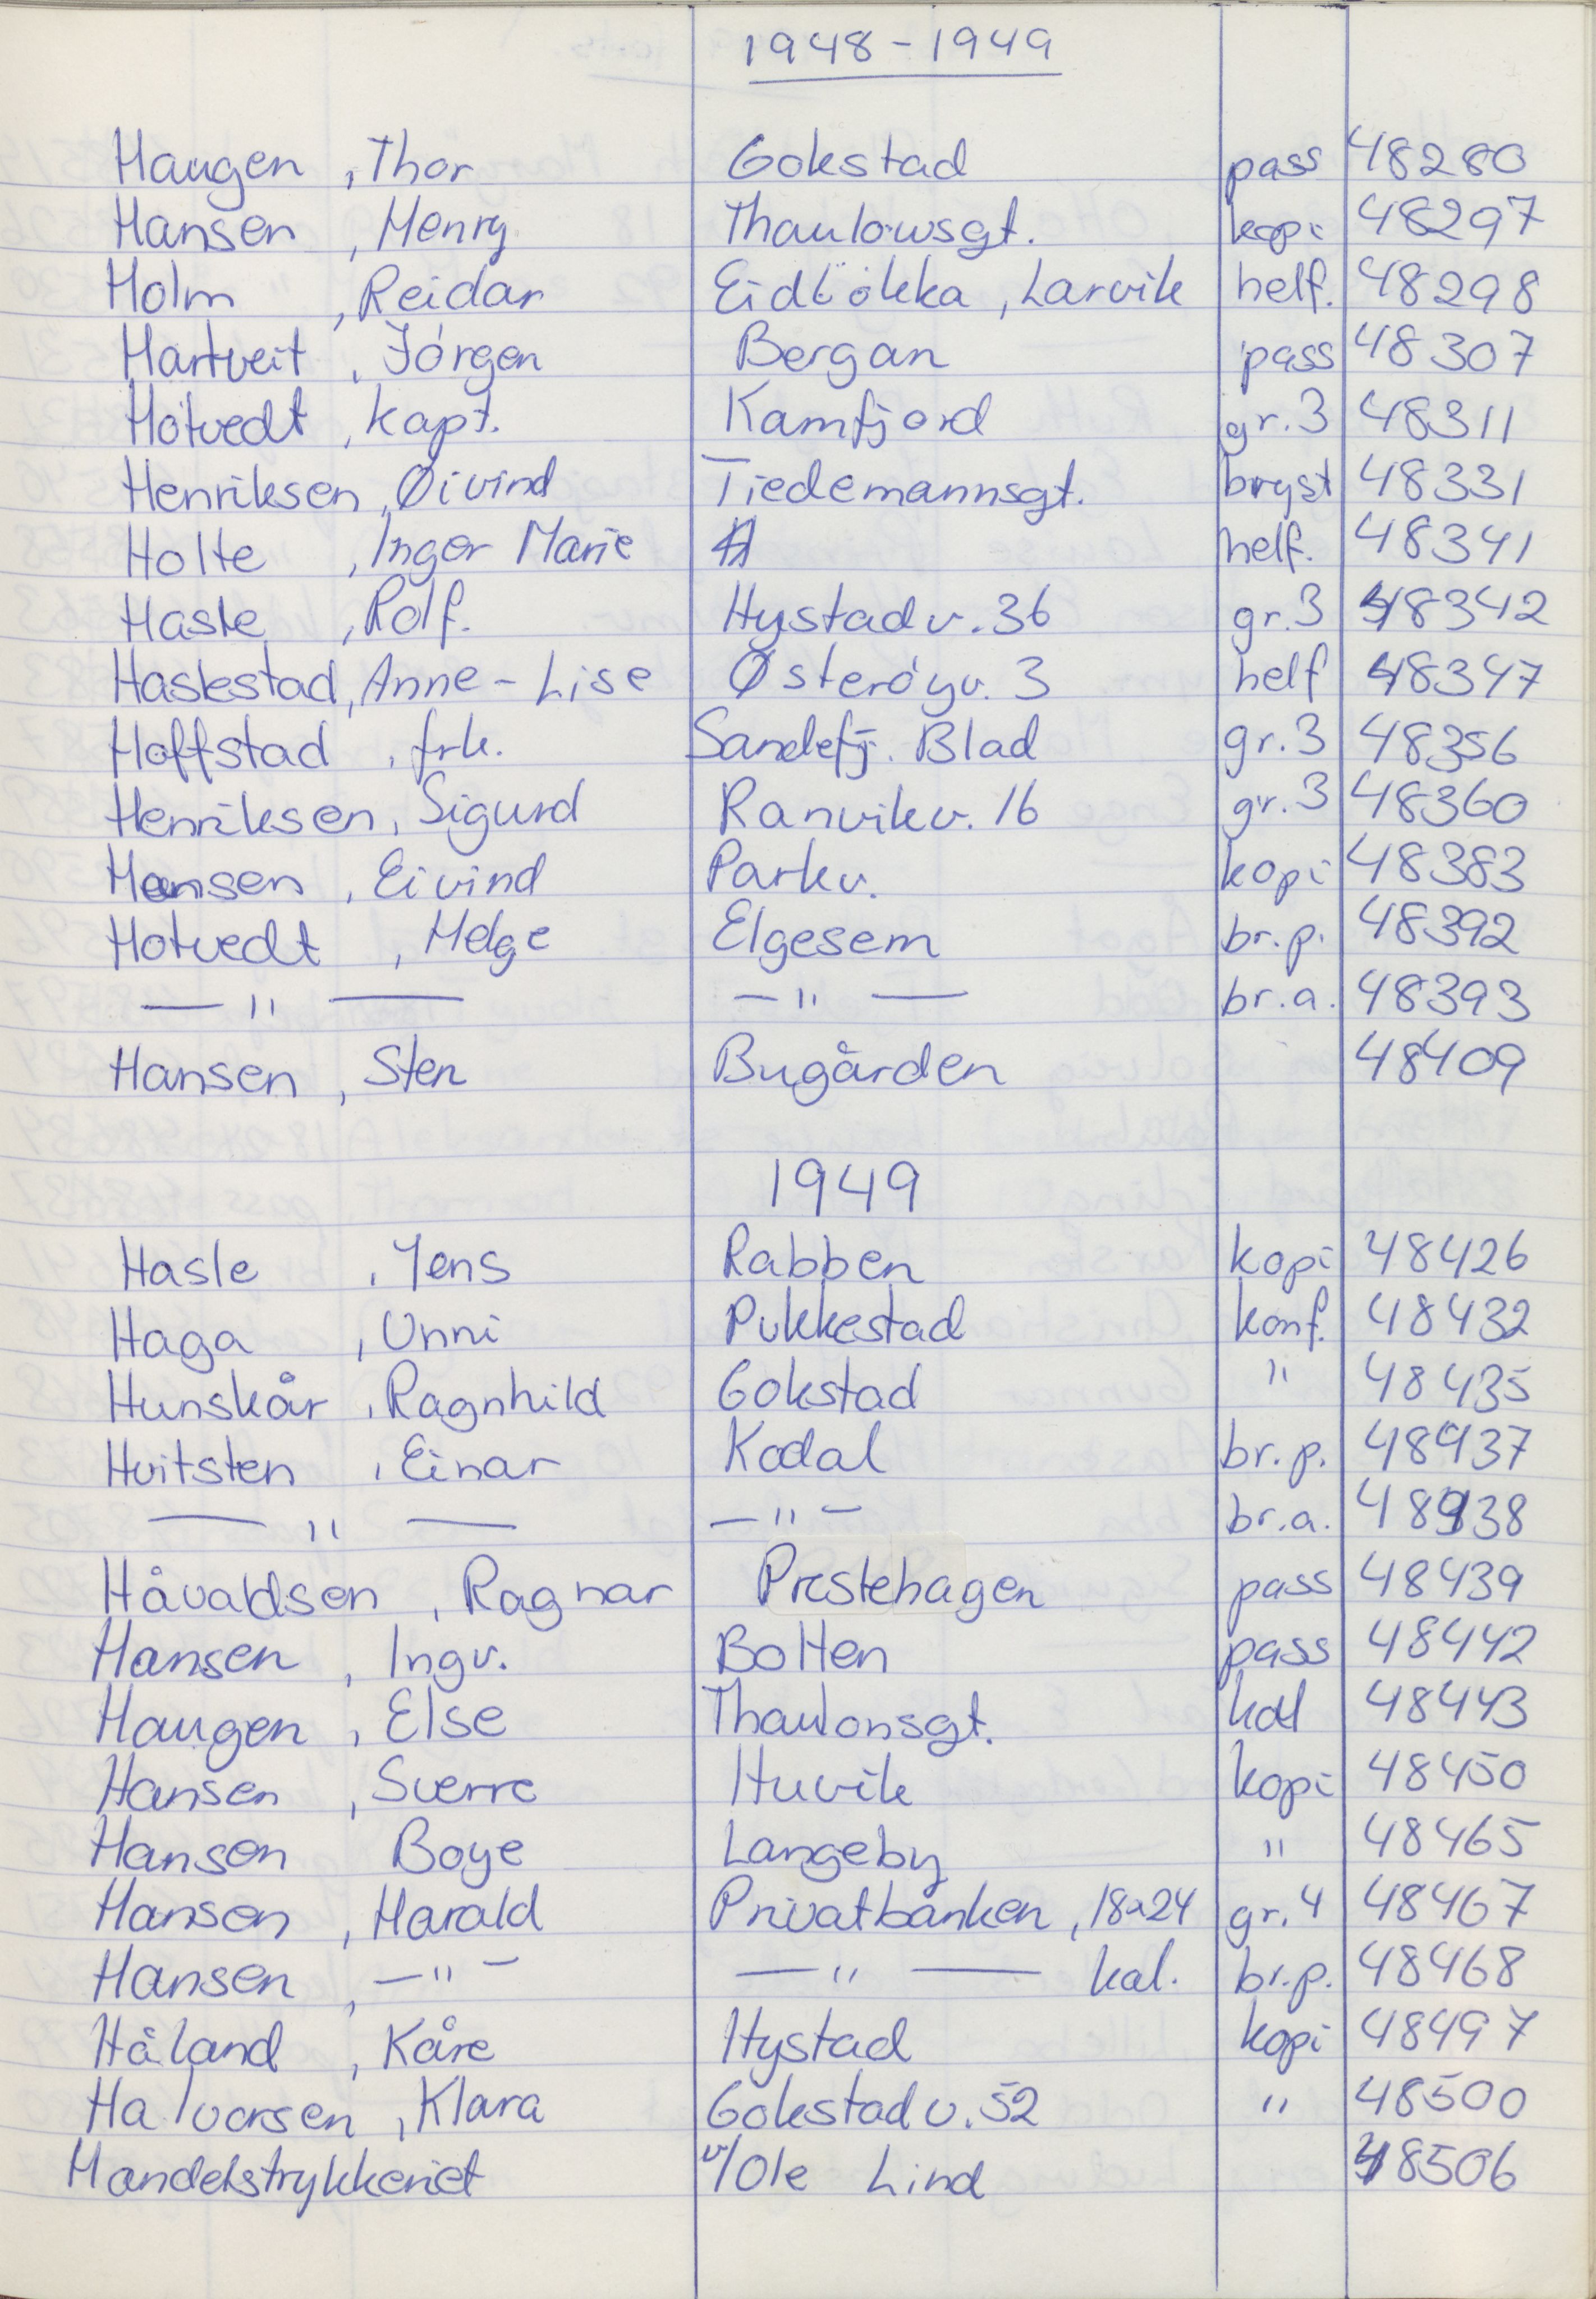 1948-1949
Haugen, Thor Gokstad pass 48280
Hansen, Henry Thaulowsgt. kopi 48297
Holm, Reidar Eidlökka, Larvik helf. 48298
Hartveit, Jörgen Bergan pass 48307
Hötvedt, kapt. Kamfjord gr.3 48311
Henriksen, Øivind Tiedemannsgt. bryst 48331
Holte, Inger Marie helf. 48341
Hasle, Rolf. Hystadv. 36 gr.3 48342
Haslestad, Anne-Lise Österöyv. 3 helf 48347
Hoffstad, frk. Sandefj. Blad gr.3 48356
Henriksen, Sigurd Ranvikv. 16 gr.3 48360
Hansen, Eivind Parkv. kopi 48383
Hotvedt, Helge Elgesem br.p. 48392
— " — — " — br.a. 48393
Hansen, Sten Bugården 48409
1949
Hasle, Jens Rabben kopi 48426
Haga, Unni Pukkestad konf. 48432
Hunskår, Ragnhild Gokstad " 48435
Hvitsten, Einar Kodal br.p. 48437
— " — — " — br.a. 48438
Håvaldsen, Ragnar Prestehagen pass 48439
Hansen, Ingv. Botten pass 48442
Haugen, Else Thaulonsgt. 48443
Hansen, Sverre Huvik kopi 48450
Hansen Boye Langeby " 48465
Hansen, Harald Privatbanken, 18x24 gr.4 48467
Hansen, — " — — " — kal. br.p. 48468
Håland, Kåre Hystad kopi 48497
Halvorsen, Klara Gokstadv. 52 " 48500
Handelstrykkeriet v/Ole Lind 48506